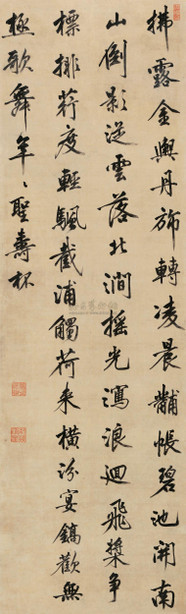 拂露金輿丹旆轉凌晨黼帳碧池開南
山倒影從雲落北澗搖光瀉浪迴飛槳爭
標排荇度輕颿截浦觸荷来橫汾宴鎬歡無
極歌舞年〻聖壽杯